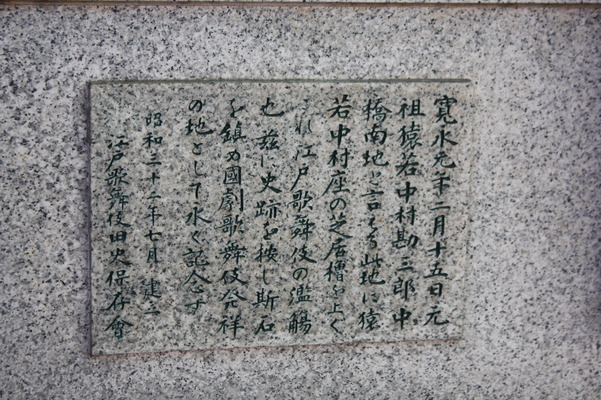 寛永元年二月十五日元
祖猿若中村勘三郎中
橋南地と言える此地に猿
若中村座の芝居櫓を上ぐ
これ江戸歌舞伎の濫觴
也 茲に史跡を按じ斯石
を鎮め國劇歌舞伎発祥
の地として永く記念す
昭和三十二年七月 建之
江戸歌舞伎旧史保存會